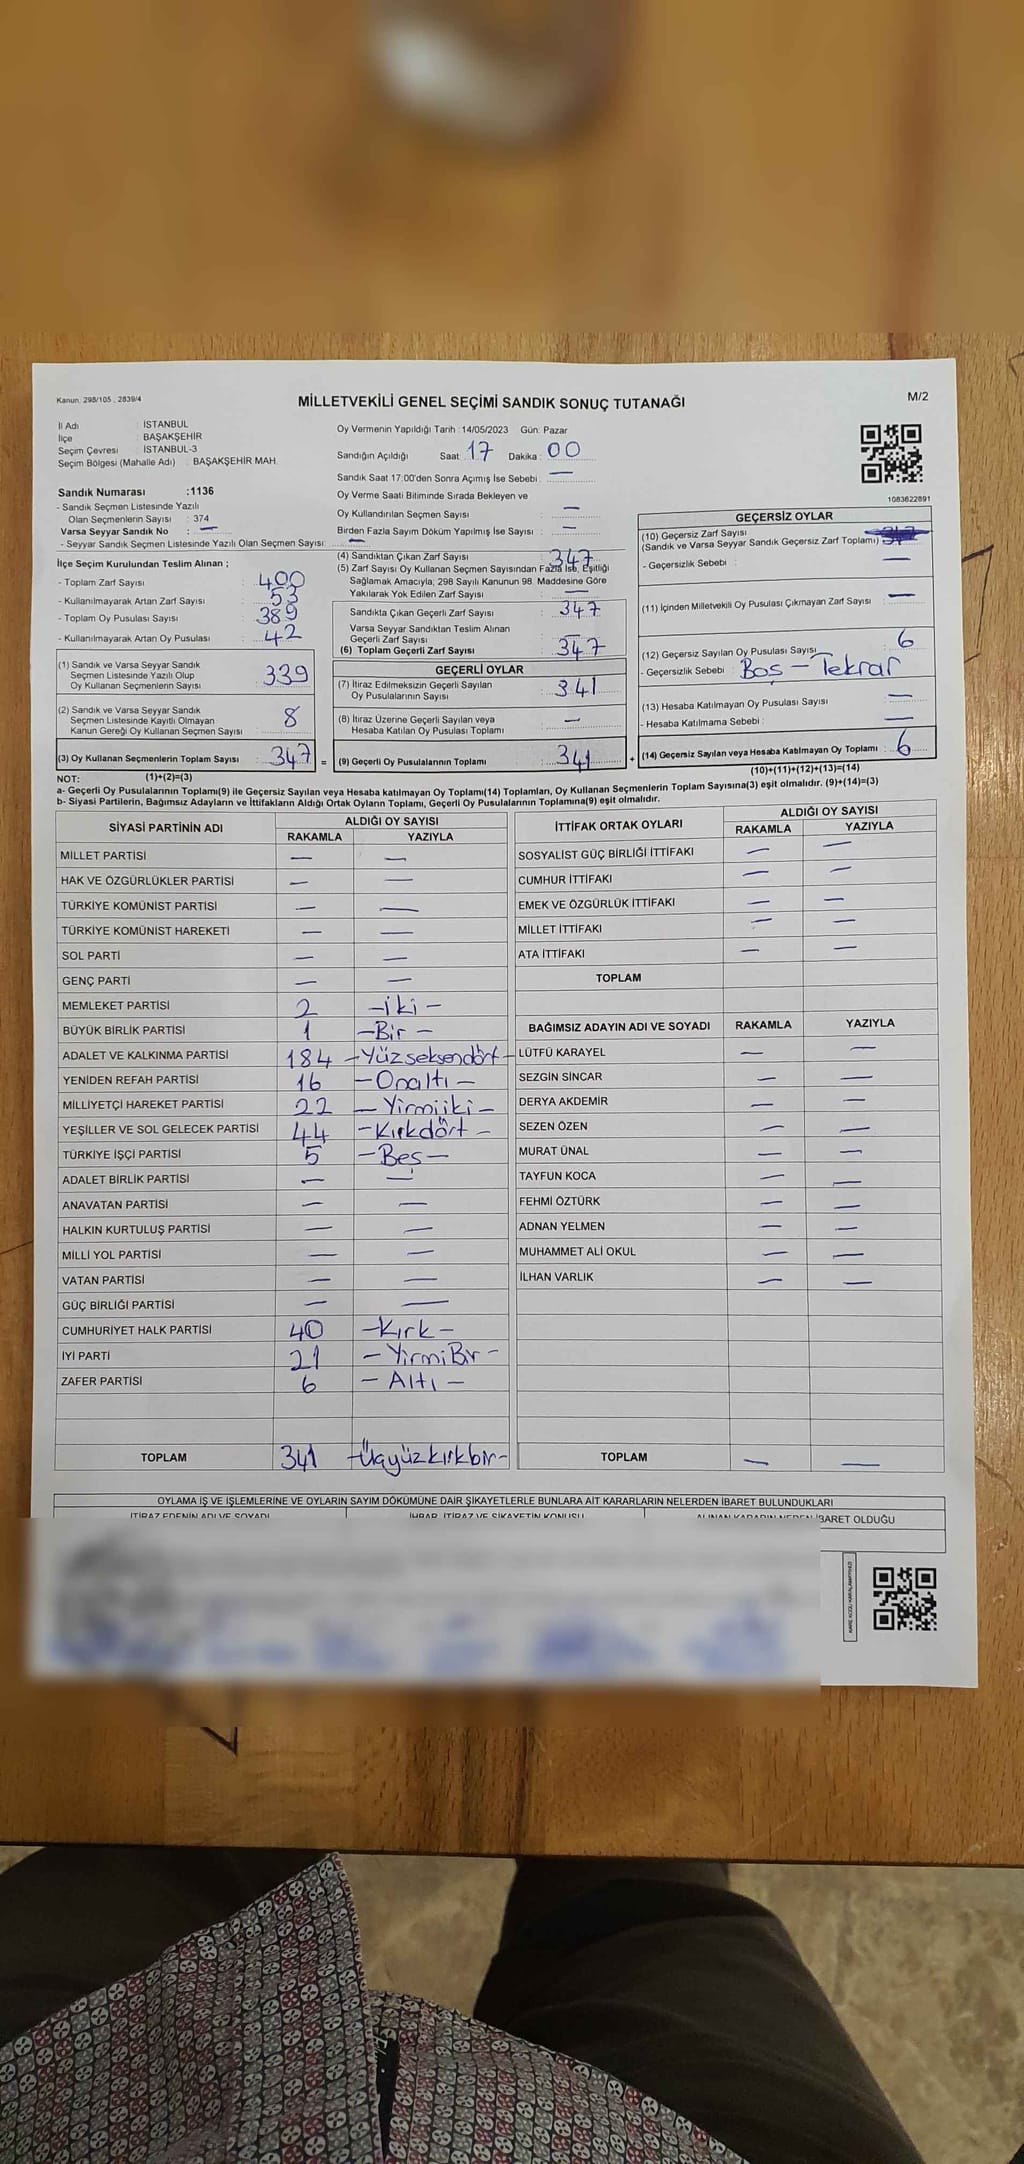 Kanun: 298/105 , 2839/4
MİLLETVEKİLİ GENEL SEÇİMİ SANDIK SONUÇ TUTANAĞI
M/2
İl Adı : İSTANBUL
İlçe : BAŞAKŞEHİR
Seçim Çevresi : İSTANBUL-3
Seçim Bölgesi (Mahalle Adı) : BAŞAKŞEHİR MAH.
Sandık Numarası :1136
- Sandık Seçmen Listesinde Yazılı
Olan Seçmenlerin Sayısı : 374
Varsa Seyyar Sandık No : —
- Seyyar Sandık Seçmen Listesinde Yazılı Olan Seçmen Sayısı: —
İlçe Seçim Kurulundan Teslim Alınan ;
- Toplam Zarf Sayısı : 400
- Kullanılmayarak Artan Zarf Sayısı : 53
- Toplam Oy Pusulası Sayısı : 389
- Kullanılmayarak Artan Oy Pusulası : 42
(1) Sandık ve Varsa Seyyar Sandık
Seçmen Listesinde Yazılı Olup
Oy Kullanan Seçmenlerin Sayısı : 339
(2) Sandık ve Varsa Seyyar Sandık
Seçmen Listesinde Kayıtlı Olmayan
Kanun Gereği Oy Kullanan Seçmen Sayısı : 8
(3) Oy Kullanan Seçmenlerin Toplam Sayısı : 347 =
Oy Vermenin Yapıldığı Tarih : 14/05/2023 Gün: Pazar
Sandığın Açıldığı Saat: 17 Dakika : 00
Sandık Saat 17:00'den Sonra Açımış İse Sebebi : —
Oy Verme Saati Bitiminde Sırada Bekleyen ve
Oy Kullandırılan Seçmen Sayısı : —
Birden Fazla Sayım Döküm Yapılmış İse Sayısı : —
(4) Sandıktan Çıkan Zarf Sayısı : 347
(5) Zarf Sayısı Oy Kullanan Seçmen Sayısından Fazla İse, Eşitliği
Sağlamak Amacıyla, 298 Sayılı Kanunun 98. Maddesine Göre
Yakılarak Yok Edilen Zarf Sayısı : —
Sandıkta Çıkan Geçerli Zarf Sayısı : 347
Varsa Seyyar Sandıktan Teslim Alınan
Geçerli Zarf Sayısı : —
(6) Toplam Geçerli Zarf Sayısı : 347
GEÇERLİ OYLAR
(7) İtiraz Edilmeksizin Geçerli Sayılan
Oy Pusulalarının Sayısı : 341
(8) İtiraz Üzerine Geçerli Sayılan veya
Hesaba Katılan Oy Pusulası Toplamı : —
(9) Geçerli Oy Pusulalarının Toplamı : 341 +
1083622891
GEÇERSİZ OYLAR
(10) Geçersiz Zarf Sayısı
(Sandık ve Varsa Seyyar Sandık Geçersiz Zarf Toplamı) :
- Geçersizlik Sebebi : —
(11) İçinden Milletvekili Oy Pusulası Çıkmayan Zarf Sayısı : —
(12) Geçersiz Sayılan Oy Pusulası Sayısı : 6
- Geçersizlik Sebebi : Boş – Tekrar
(13) Hesaba Katılmayan Oy Pusulası Sayısı : —
- Hesaba Katılmama Sebebi : —
(14) Geçersiz Sayılan veya Hesaba Katılmayan Oy Toplamı : 6
NOT: (1)+(2)=(3)
(10)+(11)+(12)+(13)=(14)
a- Geçerli Oy Pusulalarının Toplamı(9) ile Geçersiz Sayılan veya Hesaba katılmayan Oy Toplamı(14) Toplamları, Oy Kullanan Seçmenlerin Toplam Sayısına(3) eşit olmalıdır. (9)+(14)=(3)
b- Siyasi Partilerin, Bağımsız Adayların ve İttifakların Aldığı Ortak Oyların Toplamı, Geçerli Oy Pusulalarının Toplamına(9) eşit olmalıdır.
SİYASİ PARTİNİN ADI ALDIĞI OY SAYISI
RAKAMLA YAZIYLA
MİLLET PARTİSİ — —
HAK VE ÖZGÜRLÜKLER PARTİSİ — —
TÜRKİYE KOMÜNİST PARTİSİ — —
TÜRKİYE KOMÜNİST HAREKETİ — —
SOL PARTİ — —
GENÇ PARTİ — —
MEMLEKET PARTİSİ 2 –İki–
BÜYÜK BİRLİK PARTİSİ 1 –Bir–
ADALET VE KALKINMA PARTİSİ 184 –Yüzseksendört–
YENİDEN REFAH PARTİSİ 16 –Onaltı–
MİLLİYETÇİ HAREKET PARTİSİ 22 –Yirmiiki–
YEŞİLLER VE SOL GELECEK PARTİSİ 44 –Kırkdört–
TÜRKİYE İŞÇİ PARTİSİ 5 –Beş–
ADALET BİRLİK PARTİSİ — —
ANAVATAN PARTİSİ — —
HALKIN KURTULUŞ PARTİSİ — —
MİLLİ YOL PARTİSİ — —
VATAN PARTİSİ — —
GÜÇ BİRLİĞİ PARTİSİ — —
CUMHURİYET HALK PARTİSİ 40 –Kırk–
İYİ PARTİ 21 –YirmiBir–
ZAFER PARTİSİ 6 –Altı–
TOPLAM 341 –Üçyüzkırkbir–
İTTİFAK ORTAK OYLARI ALDIĞI OY SAYISI
RAKAMLA YAZIYLA
SOSYALİST GÜÇ BİRLİĞİ İTTİFAKI — —
CUMHUR İTTİFAKI — —
EMEK VE ÖZGÜRLÜK İTTİFAKI — —
MİLLET İTTİFAKI — —
ATA İTTİFAKI — —
TOPLAM
BAĞIMSIZ ADAYIN ADI VE SOYADI RAKAMLA YAZIYLA
LÜTFÜ KARAYEL — —
SEZGİN SİNCAR — —
DERYA AKDEMİR — —
SEZEN ÖZEN — —
MURAT ÜNAL — —
TAYFUN KOCA — —
FEHMİ ÖZTÜRK — —
ADNAN YELMEN — —
MUHAMMET ALİ OKUL — —
İLHAN VARLIK — —
TOPLAM — —
OYLAMA İŞ VE İŞLEMLERİNE VE OYLARIN SAYIM DÖKÜMÜNE DAİR ŞİKAYETLERLE BUNLARA AİT KARARLARIN NELERDEN İBARET BULUNDUKLARI
İTİRAZ EDENİN ADI VE SOYADI İHBAR, İTİRAZ VE ŞİKAYETİN KONUSU ALINAN KARARIN NEDEN İBARET OLDUĞU